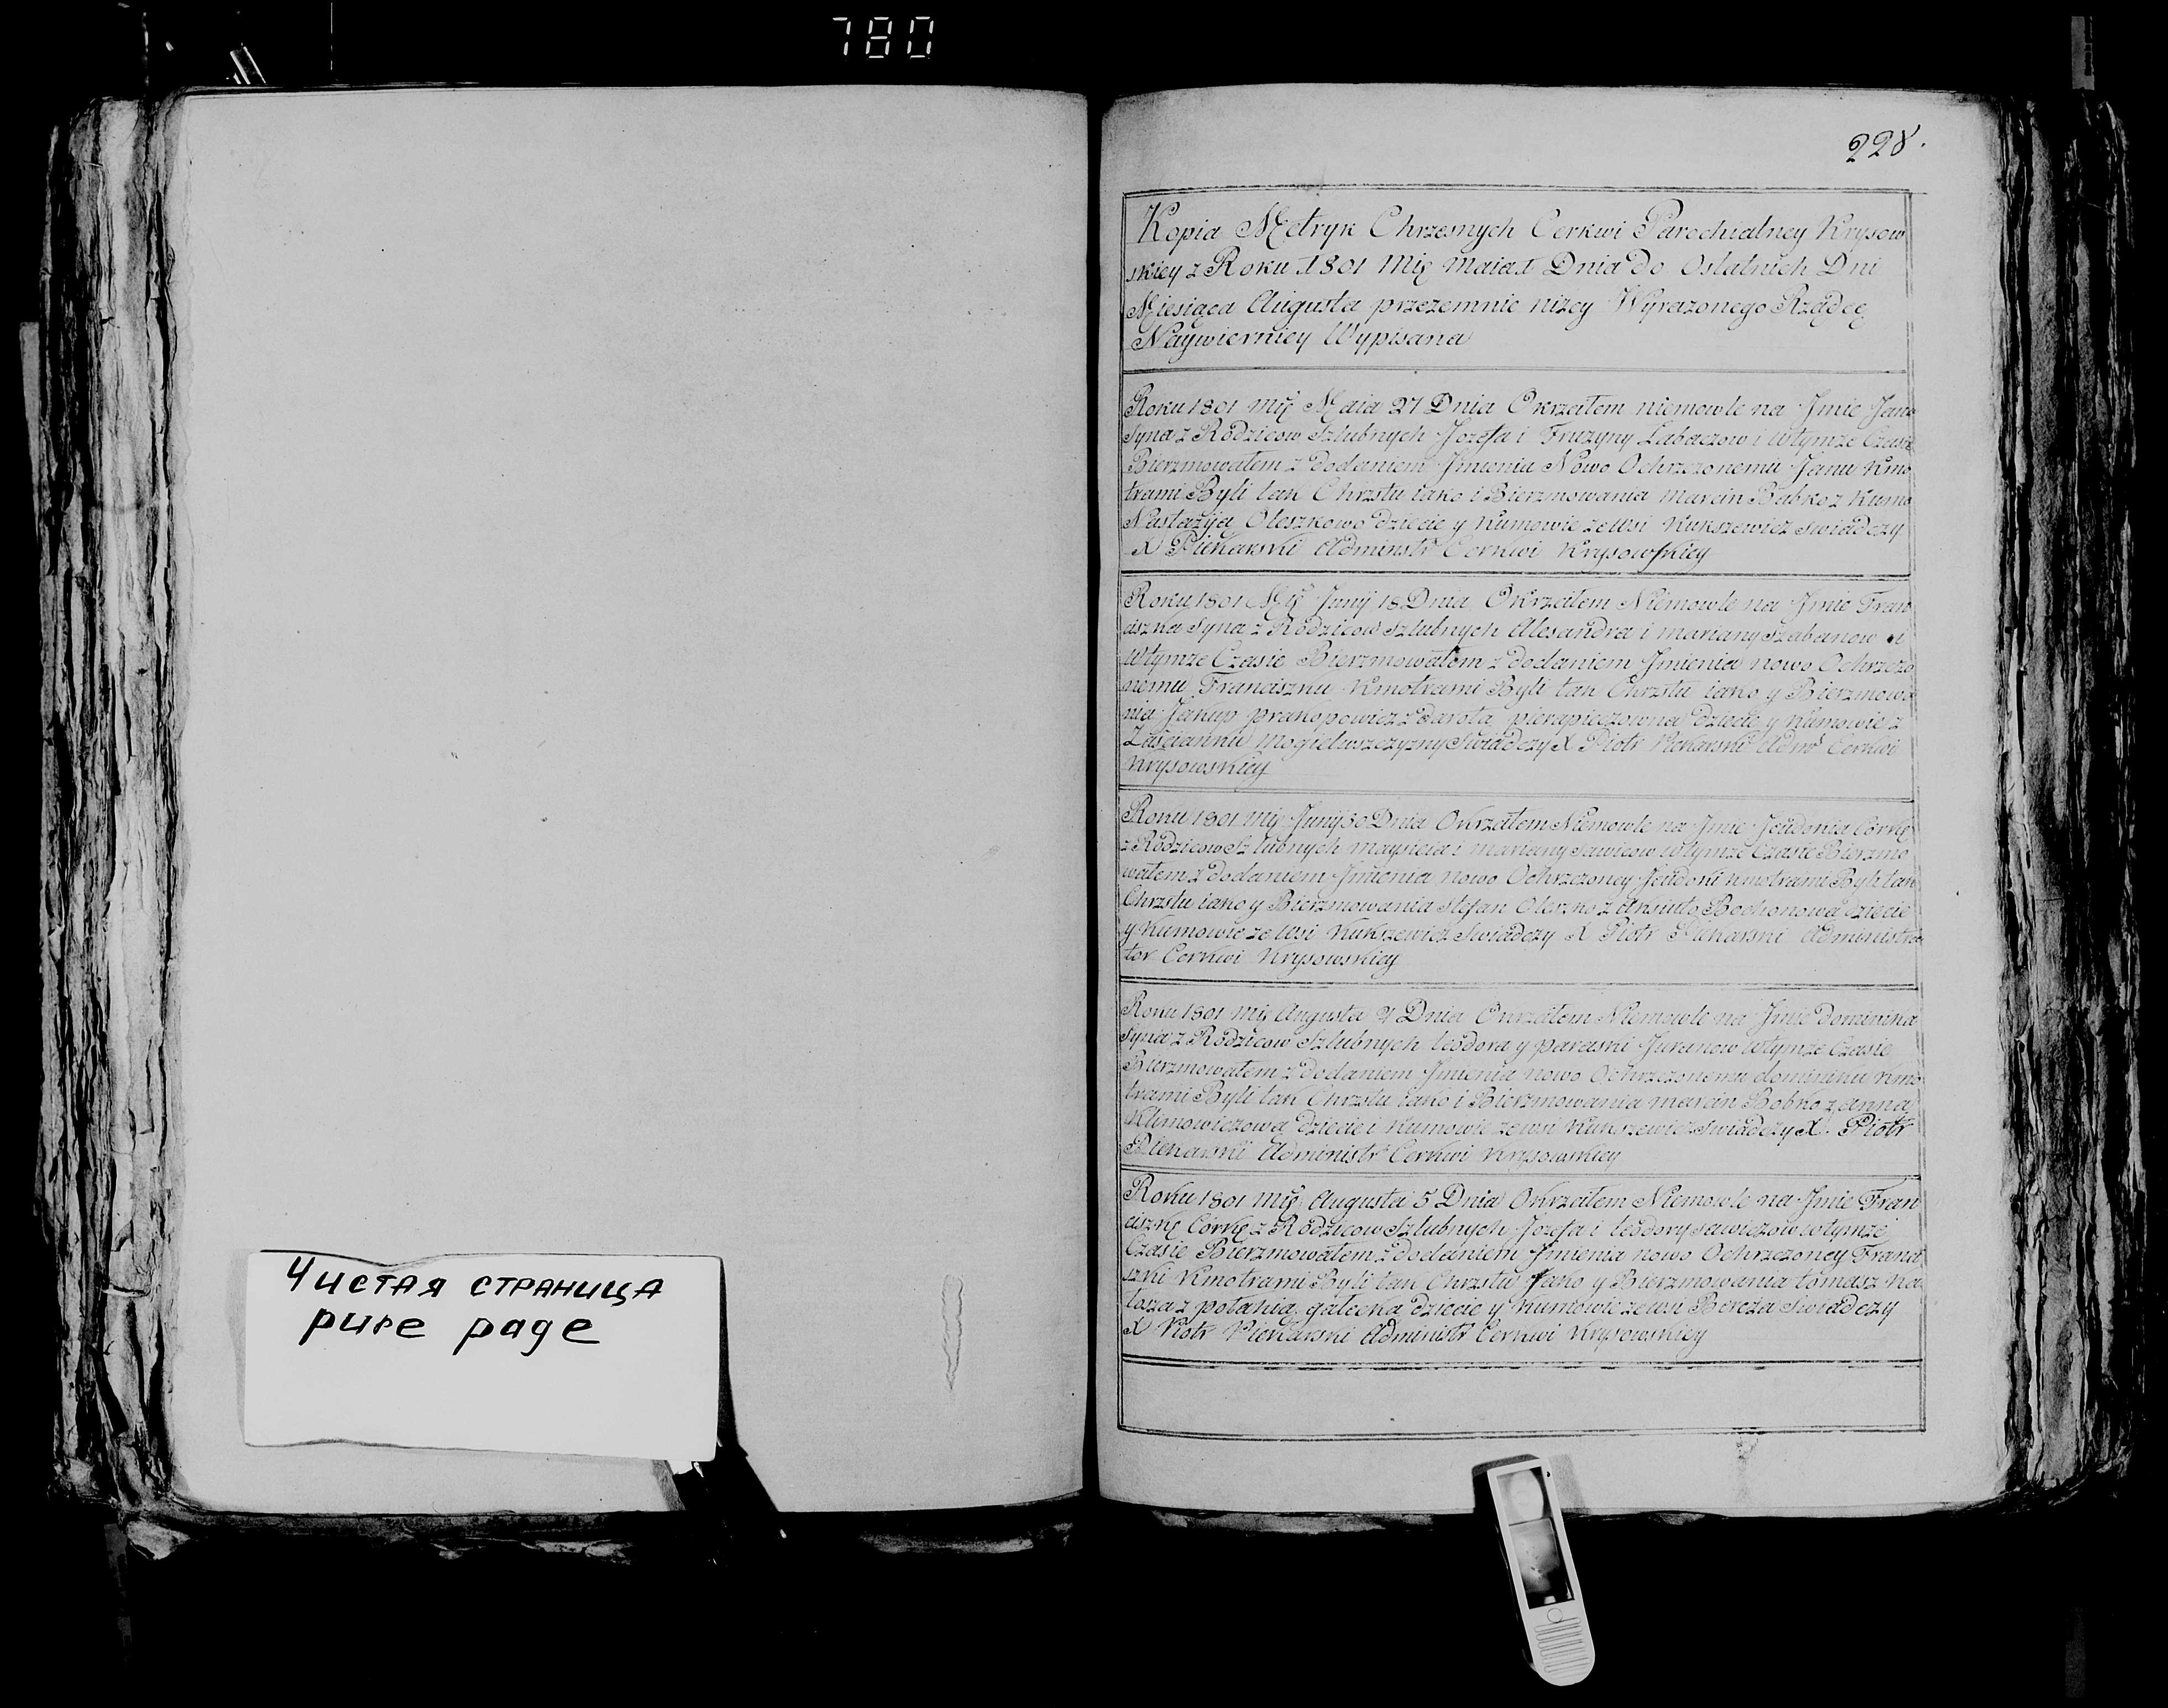 780
Чистая страница
pure page
228.
Kopia Metryk Chrzesnych Cerkwi Parochialney Krysow
skiey z Roku 1801 Mię Maia 1 Dnia do Ostatnich Dni
Miesiąca Augusta przezemnie niżey Wyrazonego Rządcę
Naywierniey Wypisana
Roku 1801 Mię Maia 27 Dnia Okrzałem niemowle na Jmie Jana
Syna z Rodzicow Szlubnych Jozefa i Fruzyny Labaczow i wtymze Czasie
Bierzmowałem z dodaniem Jmienia Nowo Ochrzczonemu Janu Kmo
trami Byli tak Chrztu iako i Bierzmowania marcin Babko z Kumo
Nastazyja Oleszkowo dziecie y Kumowie ze Wsi Kukszewicz swiadczy
X Piekarski Administr Cerkwi Krysowskiey
Roku 1801 Mię Junij 18 Dnia Okrzałem Niemowle na Jmie Fran
ciszka Syna z Rodzicow Szlubnych Alesandra i maryany Szabanow i
Wtymze Czasie Bierzmowałem z dodaniem Jmienia nowo Ochrzczo
nemu Franciszku Kmotrami Byli tak Chrztu iako y Bierzmowa
nia Jakup prakopowicz z darota pierapieczowna dziecie y Kumowie z
Zascianku Mogieluszczyzny Swiadczy X Piotr Piekarski Admr Cerkwi
Krysowskiey
Roku 1801 Mię Junij 30 Dnia Okrzałem Niemowle na Jmie Jeudokia Corkę
z Rodzicow Szlubnych maysieia i maryany Sawicow wtymze Czasie Bierzmo
wałem z dodaniem Jmienia nowo Ochrzczoney Jeudoki Kmotrami Byli tak
Chrztu iako y Bierzmowania Stefan Oleszko z Aksiuto Bochonowa dziecie
y Kumowie ze Wsi Kukszewicz Swiadczy X Piotr Piekarski Administra
tor Cerkwi Krysowskiey
Roku 1801 Mię Augusta 4 Dnia Okrzałem Niemowle na Jmie Dominika
Syna z Rodzicow Szlubnych teodora y paraski Jurunow wtymze Czasie
Bierzmowałem z dodaniem Jmienia nowo Ochrzczonemu dominiku Kmo
trami Byli tak Chrztu iako i Bierzmowania marcin Bobko z anna
Klimowiczowa dziecie i Kumowie ze wsi Kukszewicz Swiadczy X. Piotr
Piekarski Administr Cerkwi Krysowskiey
Roku 1801 Mię Augusta 5 Dnia Okrzałem Niemowle na Jmie Fran
ciszkę Corkę z Rodzicow Szlubnych Jozefa i teodory Sawiczow wtymze
Czasie Bierzmowałem z dodaniem Jmienia nowo Ochrzczoney Franci
szki Kmotrami Byli tak Chrztu Jako y Bierzmowania tomasz Ka
tosza z połania gatecka dziecie y Kumowie ze wsi Bereza Swiadczy
X Piotr Piekarski Administr Cerkwi Krysowskiey